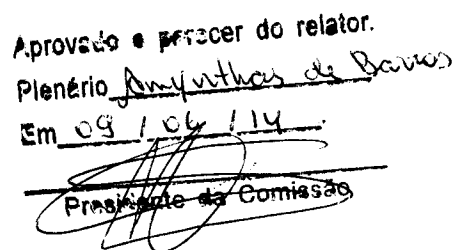 Aprovado o parecer do relator.
Plenário Amynthas de Barros
Em 09 / 04 / 14.
Presidente da Comissão